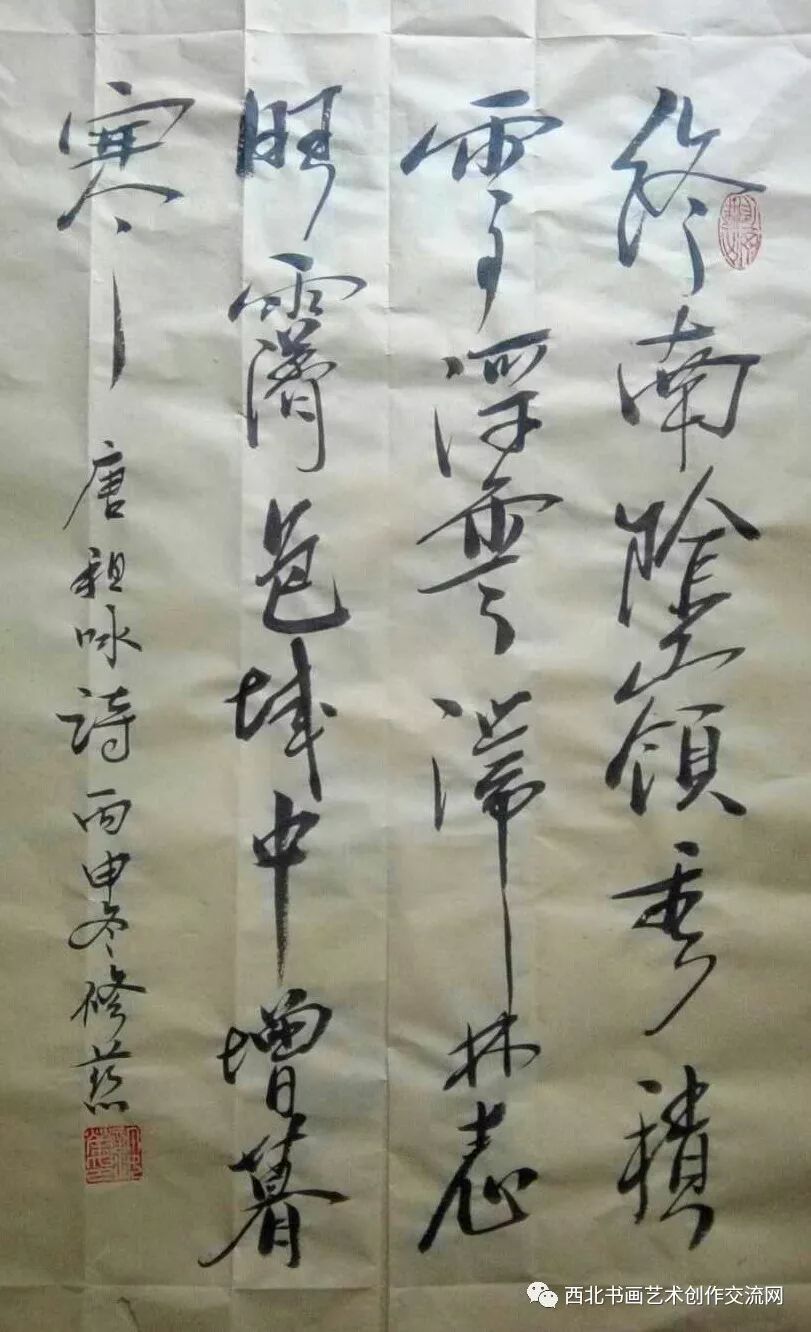 終南陰嶺秀積
雪浮雲端林表
明霽色城中增暮
寒 唐祖咏詩 丙申冬修
西北书画艺术创作交流网